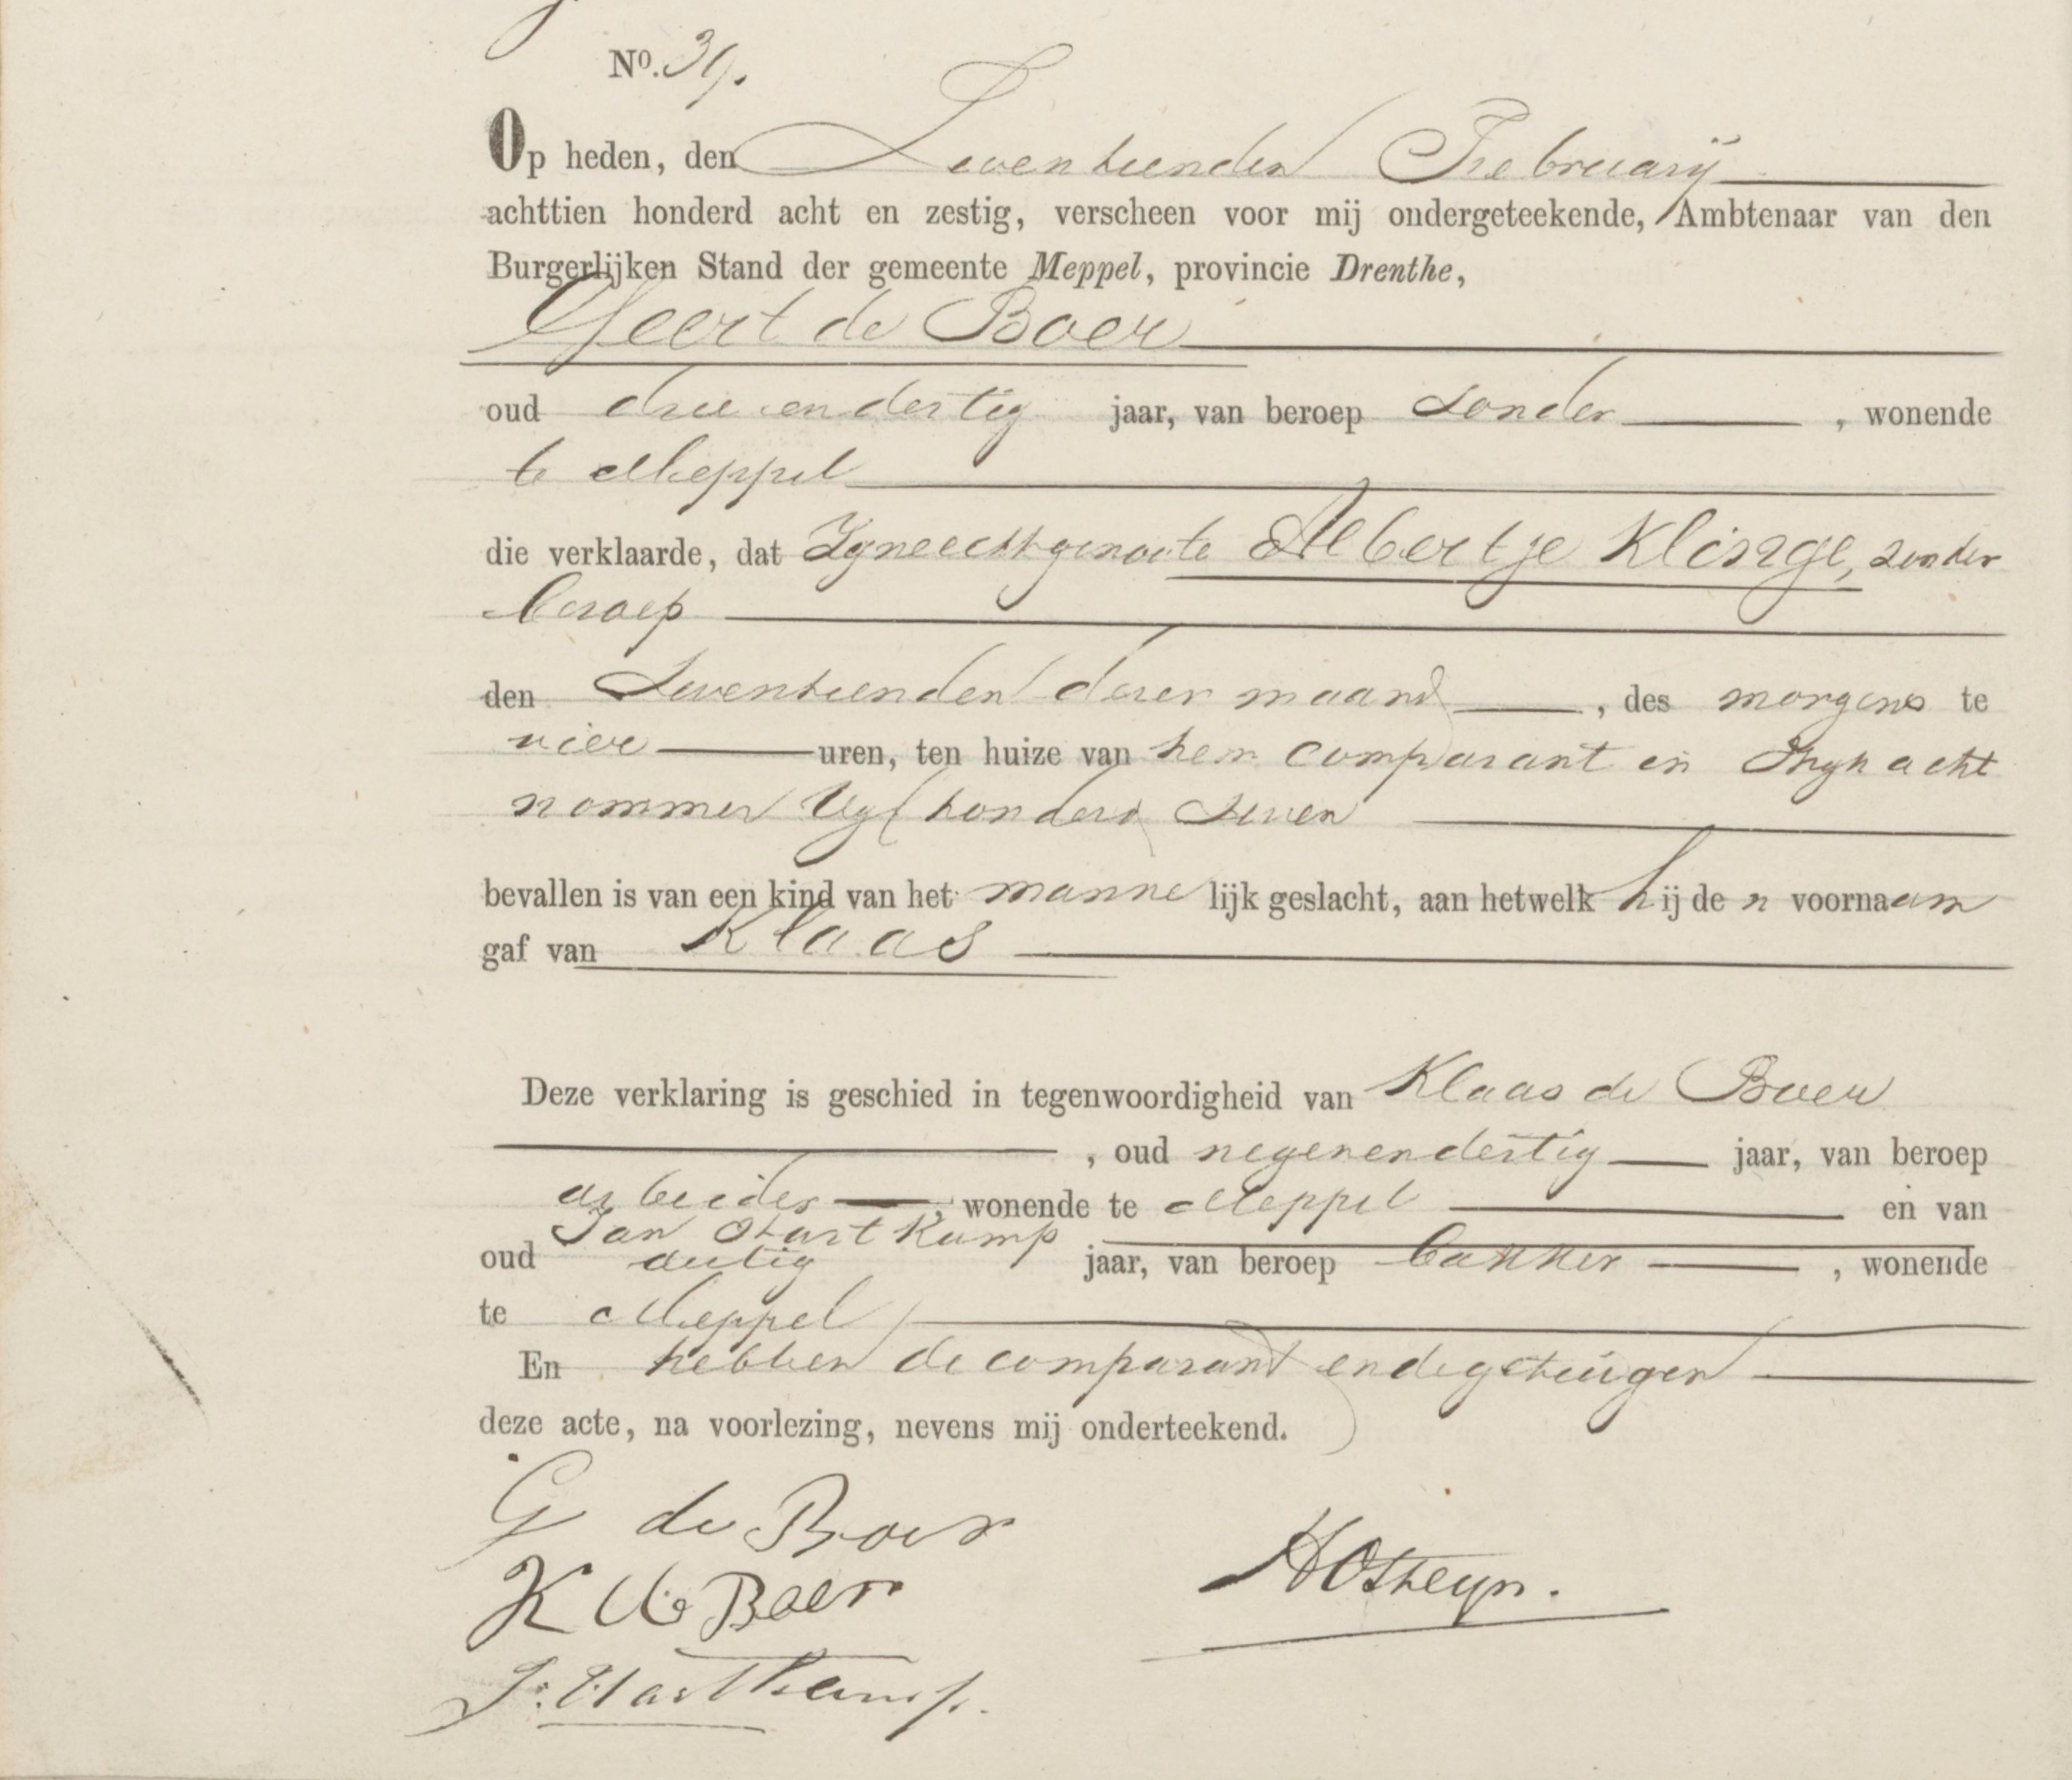 No. 39.
Op heden, den Zeventienden February
achttien honderd acht en zestig, verscheen voor mij ondergeteekende, Ambtenaar van den
Burgerlijken Stand der gemeente Meppel, provincie Drenthe,
Geert de Boer
oud drie en dertig jaar, van beroep zonder , wonende
te Meppel
die verklaarde, dat Zyne echtgenoote Albertje Klinge, zonder
beroep
den Zeventienden dezer maand , des morgens te
vier uren, ten huize van hem comparant in Wyk acht
nommer Vyf honderd Zeven
bevallen is van een kind van het mannelijk geslacht, aan hetwelk hij den voornaam
gaf van Klaas
Deze verklaring is geschied in tegenwoordigheid van Klaas de Boer
, oud negenendertig jaar, van beroep
arbeider , wonende te Meppel en van
Jan Hartkamp
oud dertig jaar, van beroep bakker , wonende
te Meppel
En hebben de comparant en de getuigen
deze acte, na voorlezing, nevens mij onderteekend.
G de Boer
K de Boer
HOstheyn.
J. Hartkamp.